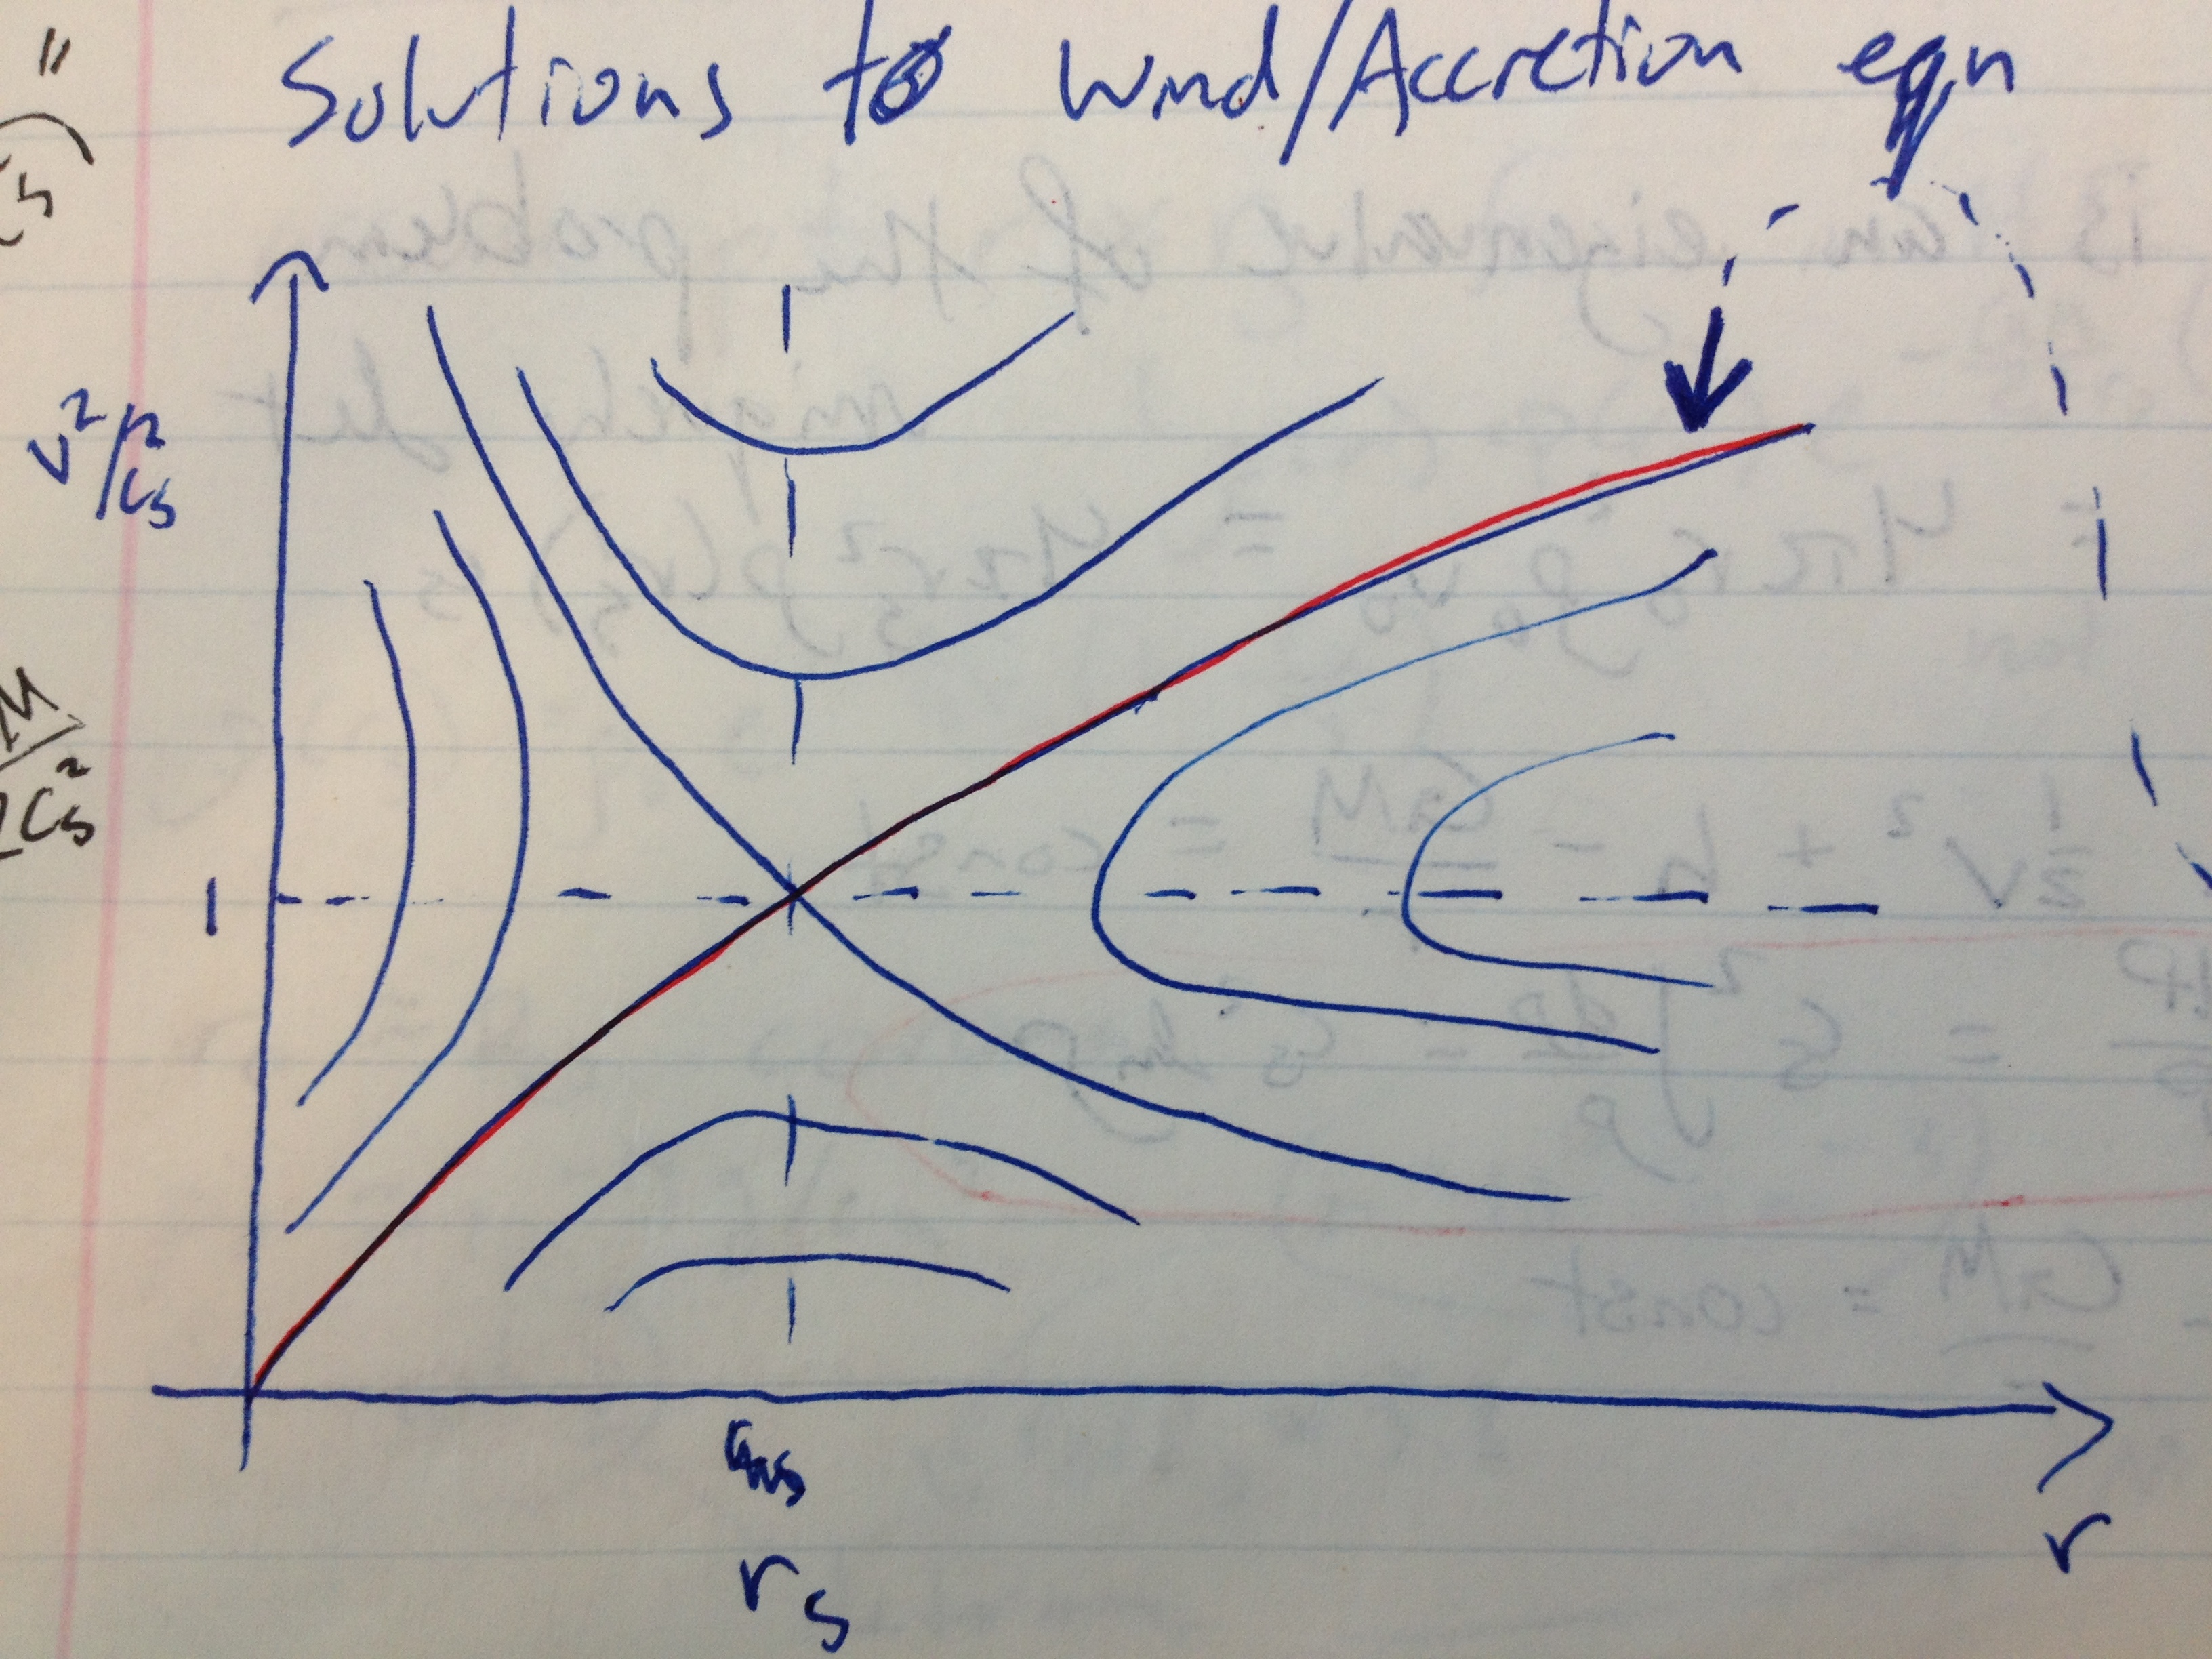 Solutions to Wind/Accretion eqn
v²/cs²
1
rs
r
"
cs)
M
2cs²